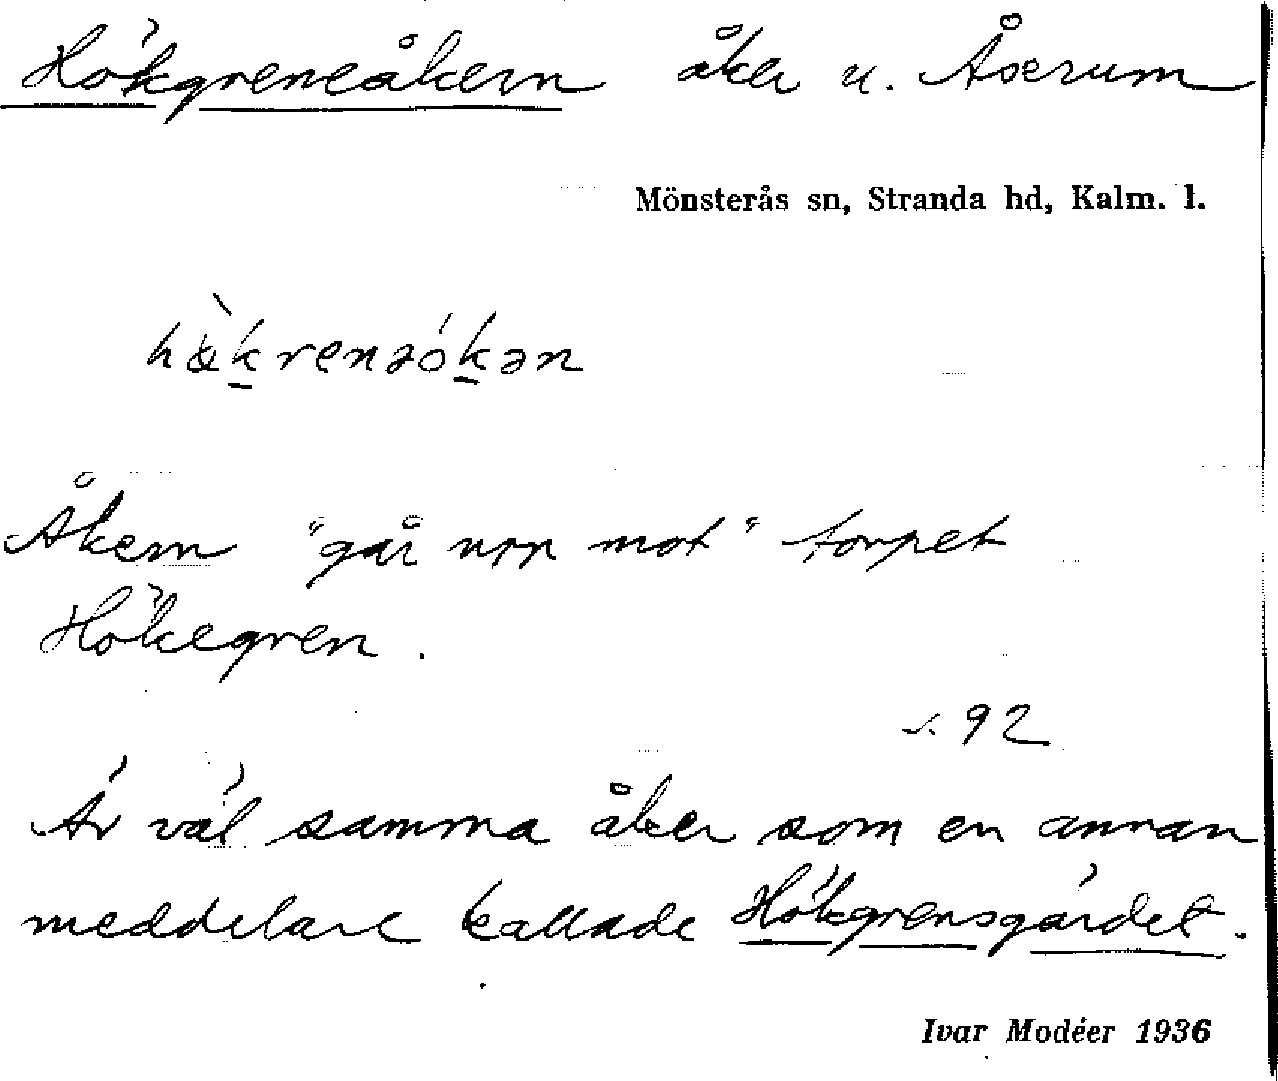 Hökgreneåkern åker u. Åserum
Mönsterås sn, Stranda hd, Kalm. l.
Åkern "går upp mot" torpet
Hökegren.
s. 92
Är väl samma åker som en annan
meddelare kallade Hökgrensgärdet.
Ivar Modéer 1936